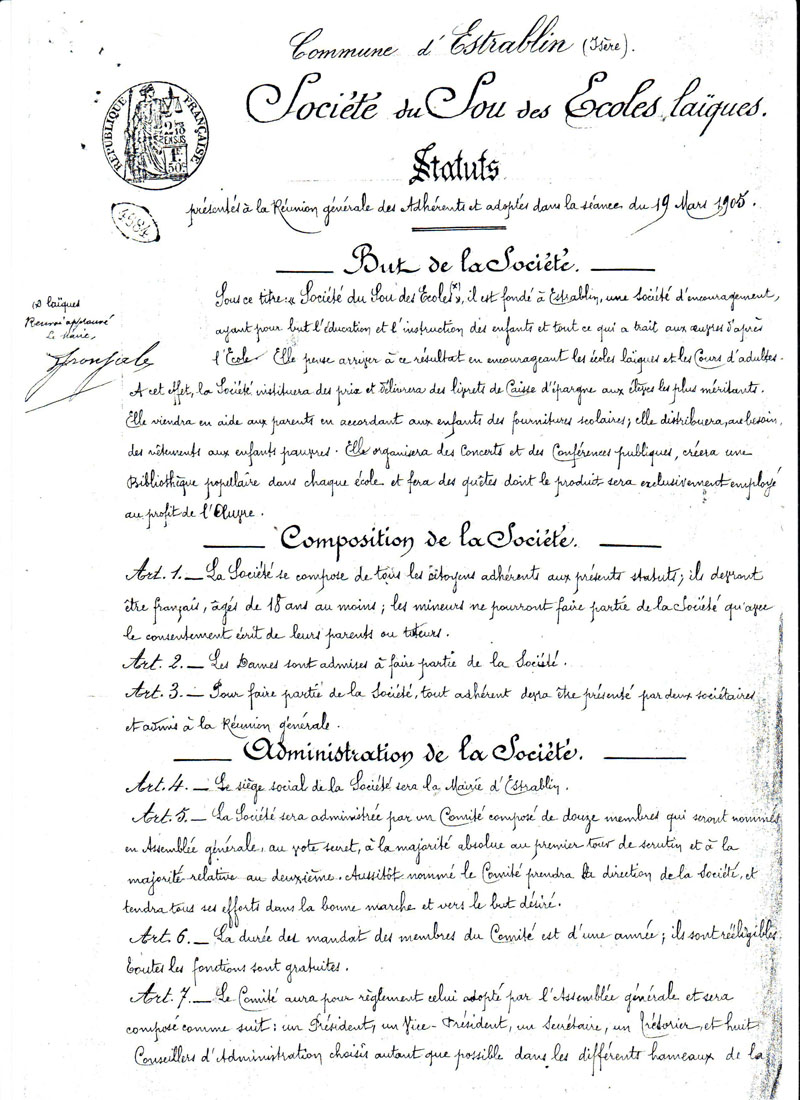 Commune d'Estrablin (Isère).
Société du Sou des Ecoles laïques.
RÉPUBLIQUE FRANÇAISE
1F
50c
4984
Statuts
présentés à la Réunion générale des Adhérents et adoptés dans la séance du 19 Mars 1905.
But de la Société.
(x) laïques
Renvoi approuvé
Le Maire,
Sous ce titre: « Société du Sou des Ecoles (x) », il est fondé à Estrablin, une Société d'encouragement,
ayant pour but l'éducation et l'instruction des enfants et tout ce qui a trait aux œuvres d'après
l'Ecole. Elle pense arriver à ce résultat en encourageant les écoles laïques et les Cours d'adultes.
A cet effet, la Société instituera des prix et délivrera des livrets de Caisse d'épargne aux élèves les plus méritants.
Elle viendra en aide aux parents en accordant aux enfants des fournitures scolaires; elle distribuera, au besoin,
des vêtements aux enfants pauvres. Elle organisera des Concerts et des Conférences publiques, créera une
Bibliothèque popullaire dans chaque école et fera des quêtes dont le produit sera exclusivement employé
au profit de l'Œuvre.
Composition de la Société.
Art. 1. — La Société se compose de tous les citoyens adhérents aux présents statuts; ils devront
être français, âgés de 18 ans au moins; les mineurs ne pourront faire partie de la Société qu'avec
le consentement écrit de leurs parents ou tuteurs.
Art. 2. — Les Dames sont admises à faire partie de la Société.
Art. 3. — Pour faire partie de la Société, tout adhérent devra être présenté par deux sociétaires
et admis à la Réunion générale.
Administration de la Société.
Art. 4. — Le siège social de la Société sera la Mairie d'Estrablin.
Art. 5. — La Société sera administrée par un Comité composé de douze membres qui seront nommés
en Assemblée générale, au vote secret, à la majorité absolue au premier tour de scrutin et à la
majorité relative au deuxième. Aussitôt nommé le Comité prendra la direction de la Société, et
tendra tous ses efforts dans la bonne marche et vers le but désiré.
Art. 6. — La durée des mandat des membres du Comité est d'une année; ils sont rééligibles.
Toutes les fonctions sont gratuites.
Art. 7. — Le Comité aura pour règlement celui adopté par l'Assemblée générale et sera
composé comme suit: un Président, un Vice-Président, un Secrétaire, un Trésorier, et huit
Conseillers d'Administration choisis autant que possible dans les différents hameaux de la